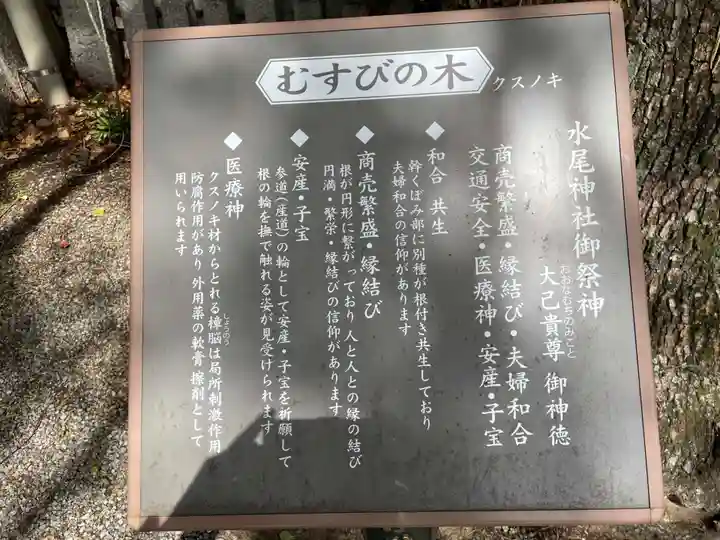 むすびの木
クスノキ
水尾神社御祭神
大己貴尊 御神徳
おおなむちのみこと
商売繁盛・縁結び・夫婦和合
交通安全・医療神・安産・子宝
◆和合 共生
幹くぼみ部に別種が根付き共生しており
夫婦和合の信仰があります
◆商売繁盛・縁結び
根が円形に繋がっており人と人との縁の結び
円満・繁栄・縁結びの信仰があります
◆安産・子宝
参道(産道)の輪として安産・子宝を祈願して
根の輪を撫で触れる姿が見受けられます
◆医療神
クスノキ材からとれる樟脳は局所刺激作用
しょうのう
防腐作用があり 外用薬の軟膏擦剤として
用いられます